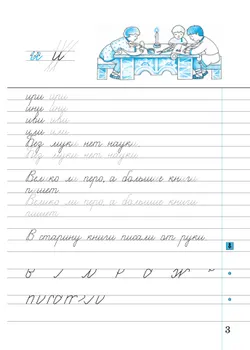 и
ири ири
ини ини
иви иви
или или
Без муки нет науки.
Без муки нет науки.
Велико ли перо, а большие книги
пишет.
Велико ли перо, а большие книги
пишет.
В старину книги писали от руки.
3